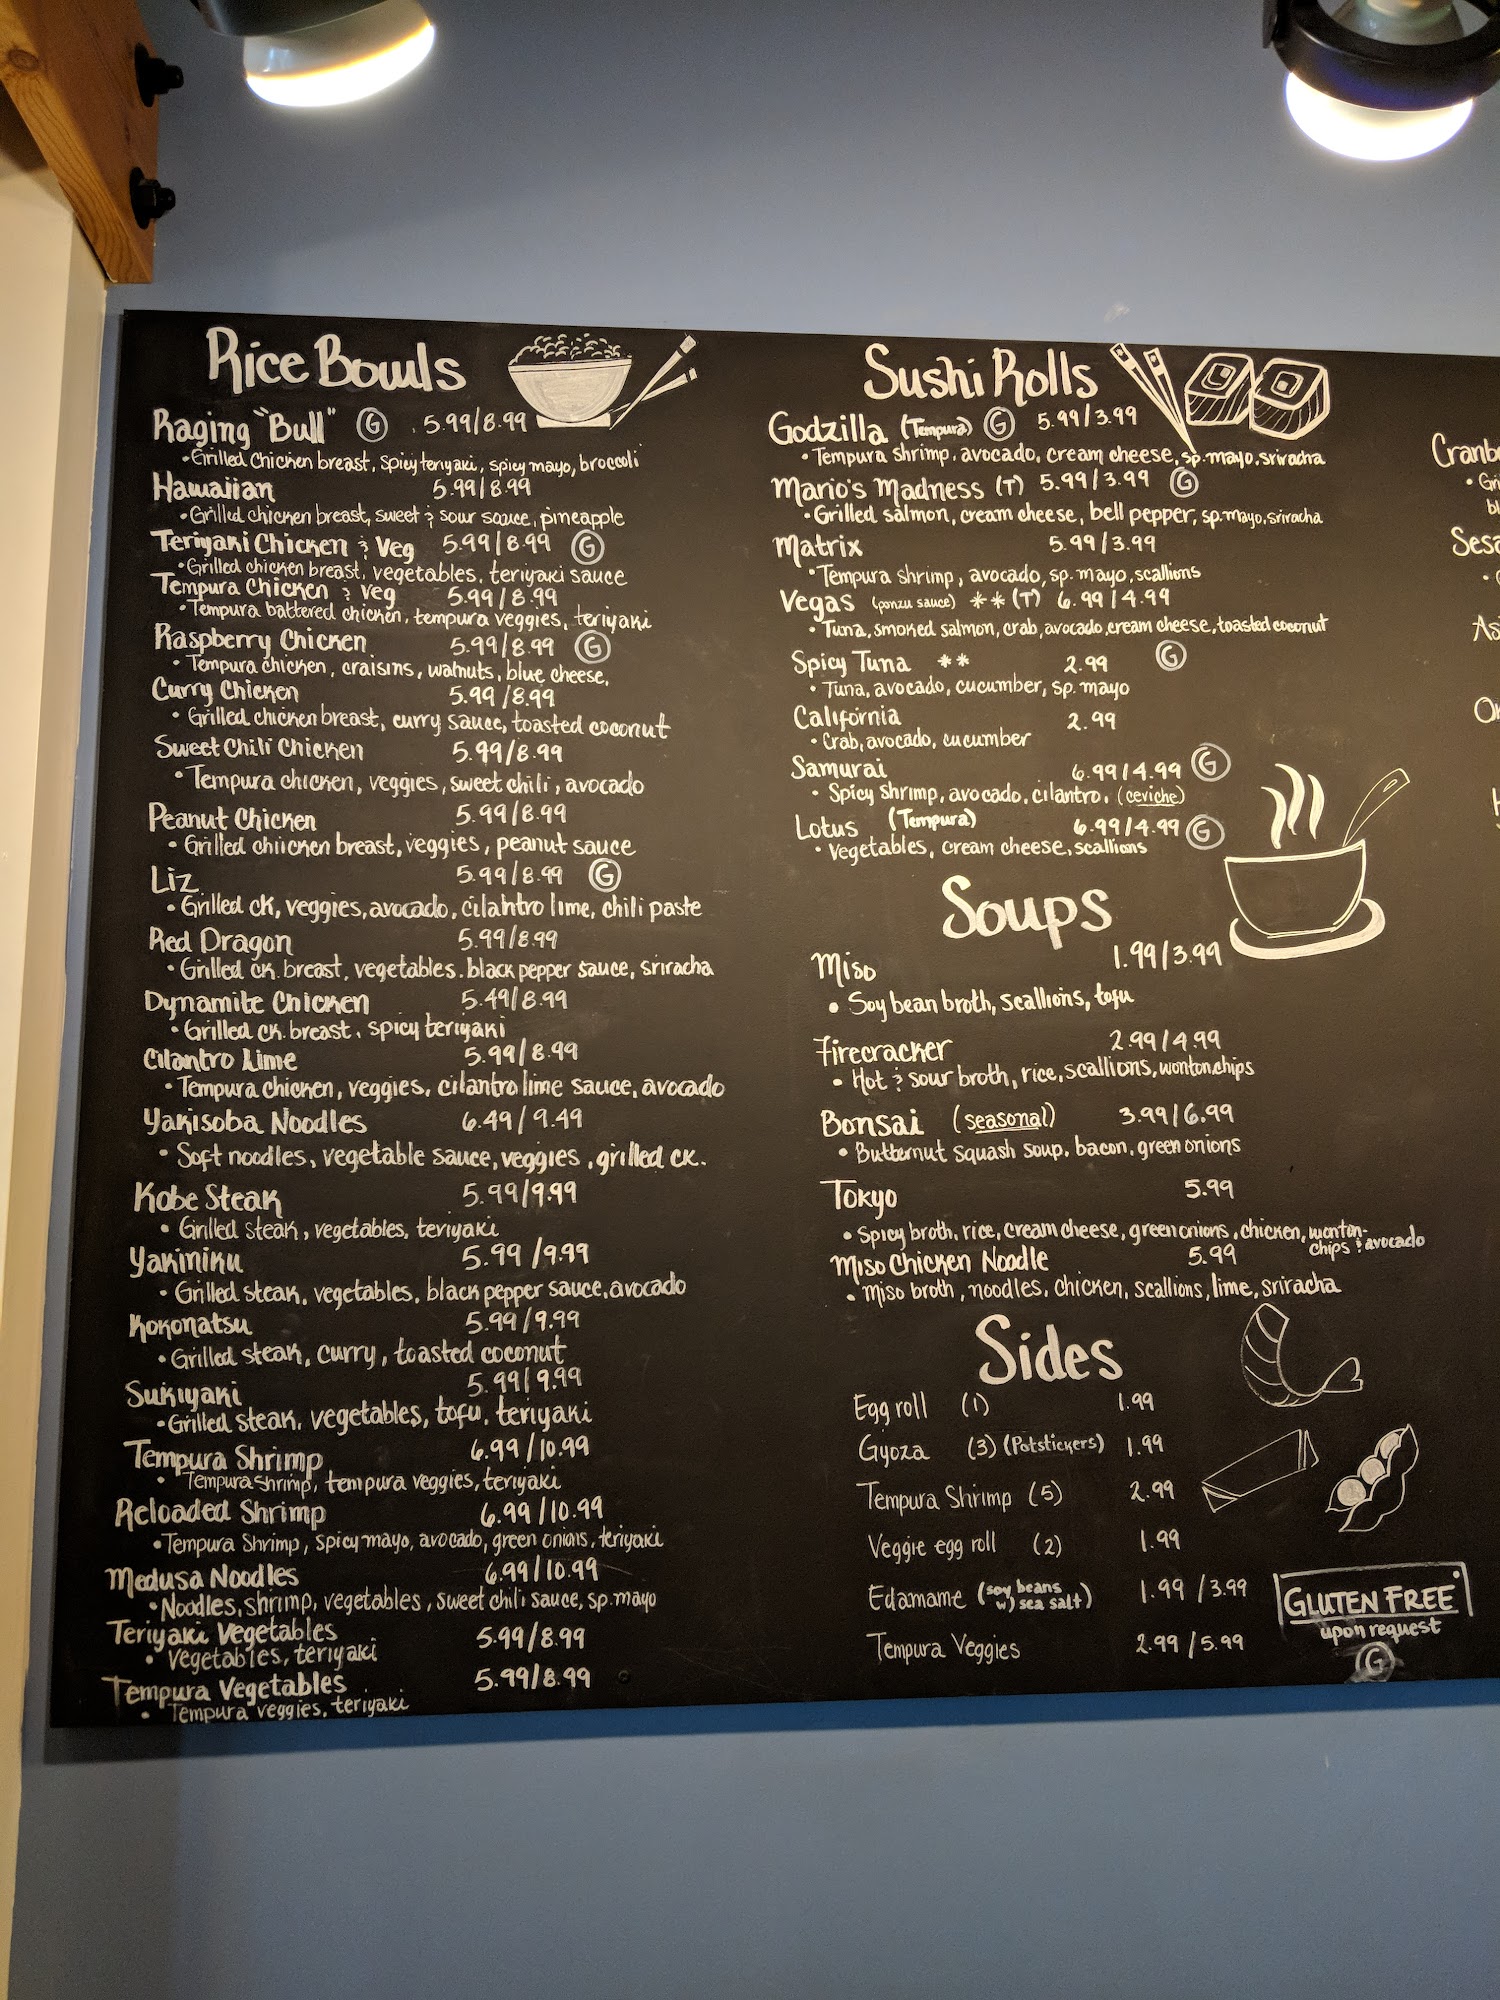 Rice Bowls
Raging "Bull" G 5.99/8.99
• Grilled Chicken breast, Spicy teriyaki, spicy mayo, broccoli
Hawaiian 5.99/8.99
• Grilled chicken breast, sweet & sour sauce, pineapple
Teriyaki Chicken & Veg 5.99/8.99 G
• Grilled chicken breast, vegetables, teriyaki sauce
Tempura Chicken & Veg 5.99/8.99
• Tempura battered chicken, tempura veggies, teriyaki
Raspberry Chicken 5.99/8.99 G
• Tempura chicken, craisins, walnuts, blue cheese,
Curry Chicken 5.99/8.99
• Grilled chicken breast, curry sauce, toasted coconut
Sweet Chili Chicken 5.99/8.99
• Tempura chicken, veggies, sweet chili, avocado
Peanut Chicken 5.99/8.99
• Grilled chiicken breast, veggies, peanut sauce
Liz 5.99/8.99 G
• Grilled ck, veggies, avocado, cilantro lime, chili paste
Red Dragon 5.99/8.99
• Grilled ck. breast, vegetables. black pepper sauce, sriracha
Dynamite Chicken 5.49/8.99
• Grilled ck. breast, spicy teriyaki
Cilantro Lime 5.99/8.99
• Tempura chicken, veggies, cilantro lime sauce, avocado
Yakisoba Noodles 6.49/9.49
• Soft noodles, vegetable sauce, veggies, grilled ck.
Kobe Steak 5.99/9.99
• Grilled steak, vegetables, teriyaki
Yakiniku 5.99/9.99
• Grilled steak, vegetables, black pepper sauce, avocado
Kokonatsu 5.99/9.99
• Grilled steak, curry, toasted coconut
Sukiyaki 5.99/9.99
• Grilled steak, vegetables, tofu, teriyaki
Tempura Shrimp 6.99/10.99
• Tempura Shrimp, tempura veggies, teriyaki
Reloaded Shrimp 6.99/10.99
• Tempura Shrimp, spicy mayo, avocado, green onions, teriyaki
Medusa Noodles 6.99/10.99
• Noodles, shrimp, vegetables, sweet chili sauce, sp. mayo
Teriyaki Vegetables 5.99/8.99
• Vegetables, teriyaki
Tempura Vegetables 5.99/8.99
• Tempura veggies, teriyaki
Sushi Rolls
Godzilla (Tempura) G 5.99/3.99
• Tempura shrimp, avocado, cream cheese, sp. mayo, sriracha
Mario's Madness (T) 5.99/3.99 G
• Grilled salmon, cream cheese, bell pepper, sp. mayo, sriracha
Matrix 5.99/3.99
• Tempura shrimp, avocado, sp. mayo, scallions
Vegas (ponzu sauce) ** (T) 6.99/4.99
• Tuna, smoked salmon, crab, avocado, cream cheese, toasted coconut
Spicy Tuna ** 2.99 G
• Tuna, avocado, cucumber, sp. mayo
California 2.99
• Crab, avocado, cucumber
Samurai 6.99/4.99 G
• Spicy shrimp, avocado, cilantro, (ceviche)
Lotus (Tempura) 6.99/4.99 G
• Vegetables, cream cheese, scallions
Soups
Miso 1.99/3.99
• Soy bean broth, scallions, tofu
Firecracker 2.99/4.99
• Hot & sour broth, rice, scallions, wonton chips
Bonsai (seasonal) 3.99/6.99
• Butternut squash soup, bacon, green onions
Tokyo 5.99
• Spicy broth, rice, cream cheese, green onions, chicken, wonton-
chips & avocado
Miso Chicken Noodle 5.99
• miso broth, noodles, chicken, scallions, lime, sriracha
Sides
Egg roll (1) 1.99
Gyoza (3) (Potstickers) 1.99
Tempura Shrimp (5) 2.99
Veggie egg roll (2) 1.99
Edamame (soy beans w/ sea salt) 1.99/3.99
Tempura Veggies 2.99/5.99
GLUTEN FREE
upon request
G